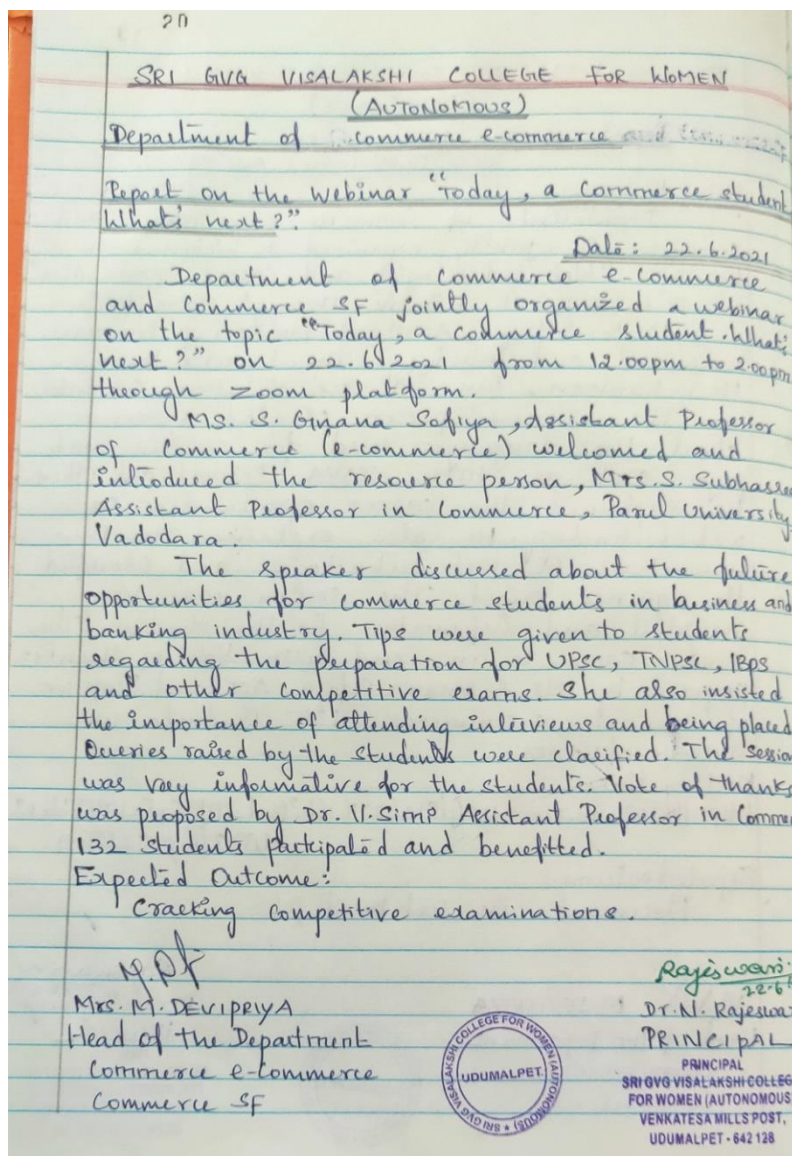 20
SRI GVG VISALAKSHI COLLEGE FOR WOMEN
(AUTONOMOUS)
Department of commerce e-commerce and
Report on the Webinar "Today, a Commerce student
What's next?".
Date: 22.6.2021
Department of commerce e-commerce
and Commerce SF jointly organized a webinar
on the topic "Today, a commerce student. What's
next?" on 22.6.2021 from 12.00pm to 2.00pm
through zoom platform.
Ms. S. Gnana Sofiya, Assistant Professor
of Commerce (e-commerce) welcomed and
introduced the resource person, Mrs. S. Subhasree
Assistant Professor in Commerce, Parul University,
Vadodara.
The speaker discussed about the future
opportunities for commerce students in business and
banking industry. Tips were given to students
regarding the preparation for UPSC, TNPSC, IBPS
and other competitive exams. She also insisted
the importance of attending interviews and being placed
Queries raised by the students were clarified. The Session
was very informative for the students. Vote of thanks
was proposed by Dr. V. Simp Assistant Professor in Comme
132 students participated and benefitted.
Expected Outcome:
Cracking competitive examinations.
Rajeswari
22.6
Mrs. M. DEVIPRIYA
Dr. N. Rajeswa
Head of the Department
PRINCIPAL
Commerce e-commerce
Commerce SF
SRI GVG VISALAKSHI COLLEGE FOR WOMEN (AUTONOMOUS)
UDUMALPET
PRINCIPAL
SRI GVG VISALAKSHI COLLEG
FOR WOMEN (AUTONOMOUS
VENKATESA MILLS POST,
UDUMALPET - 642 128